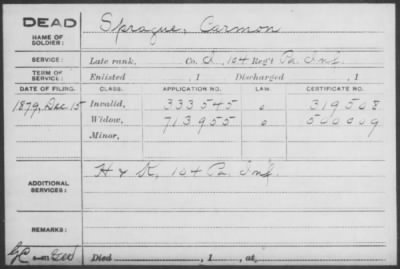 DEAD
NAME OF SOLDIER: Sprague, Carmon
SERVICE: Late rank, Co. 104 Reg't Pa. Inf.
TERM OF SERVICE: Enlisted , 1 Discharged , 1
DATE OF FILING. CLASS. APPLICATION NO. LAW. CERTIFICATE NO.
1879, Dec 15 Invalid, 333545 319508
Widow, 713955 500009
Minor,
ADDITIONAL SERVICES: H & K, 104 Pa. Inf.
REMARKS:
Died , 1 , at